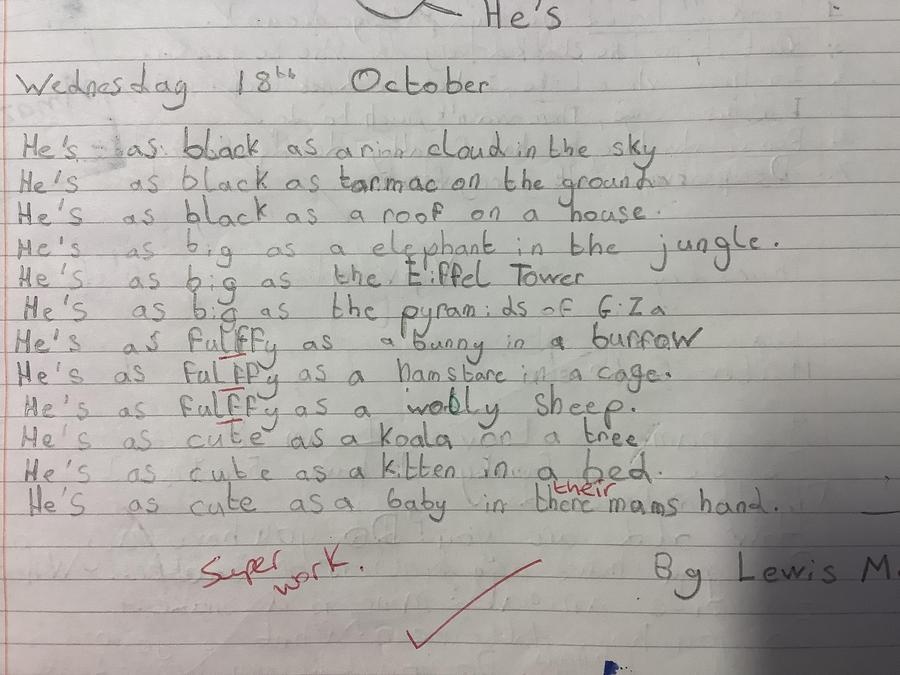 He's
Wednesday 18th October
He's as black as a rain cloud in the sky
He's as black as tarmac on the ground
He's as black as a roof on a house.
He's as big as a elephant in the jungle.
He's as big as the Eiffel Tower
He's as big as the pyramids of GiZa
He's as fulffy as a bunny in a burrow
He's as fulffy as a hamstare in a cage.
He's as fulffy as a woolly sheep.
He's as cute as a koala on a tree
He's as cute as a kitten in a bed.
their
He's as cute as a baby in there mams hand.
Super work.
By Lewis M.